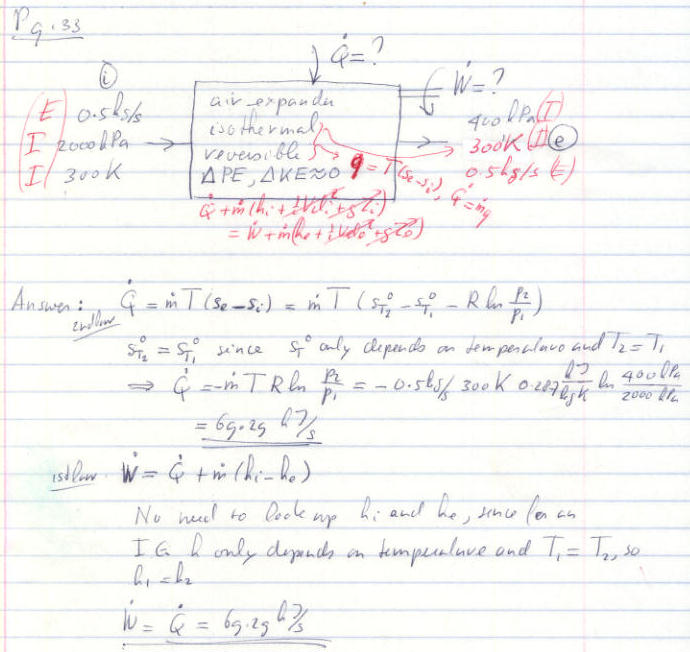 Pg. 33
Q̇ = ?
Ẇ = ?
(i)
(E 0.5 kg/s
I 2000 kPa
I) 300 K
air expander
isothermal
reversible
ΔPE, ΔKE≈0
q = T(se-si), Q̇ = ṁq
400 kPa (I)
300K (I) (e)
0.5 kg/s (E)
Q̇ + ṁ(hi + ½Veli² + gZi)
= Ẇ + ṁ(he + ½Vele² + gZe)
Answer: Q̇ = ṁ T (se - si) = ṁ T (s°T2 - s°T1 - R ln p2/p1)
2nd law
s°T2 = s°T1 since s°T only depends on temperature and T2 = T1
⇒ Q̇ = -ṁ T R ln p2/p1 = - 0.5 kg/s 300 K 0.287 kJ/kg K ln 400 kPa/2000 kPa
= 69.29 kJ/s
1st law. Ẇ = Q̇ + ṁ (hi - he)
No need to look up hi and he, since for an
IG h only depends on temperature and T1 = T2, so
h1 = h2
Ẇ = Q̇ = 69.29 kJ/s